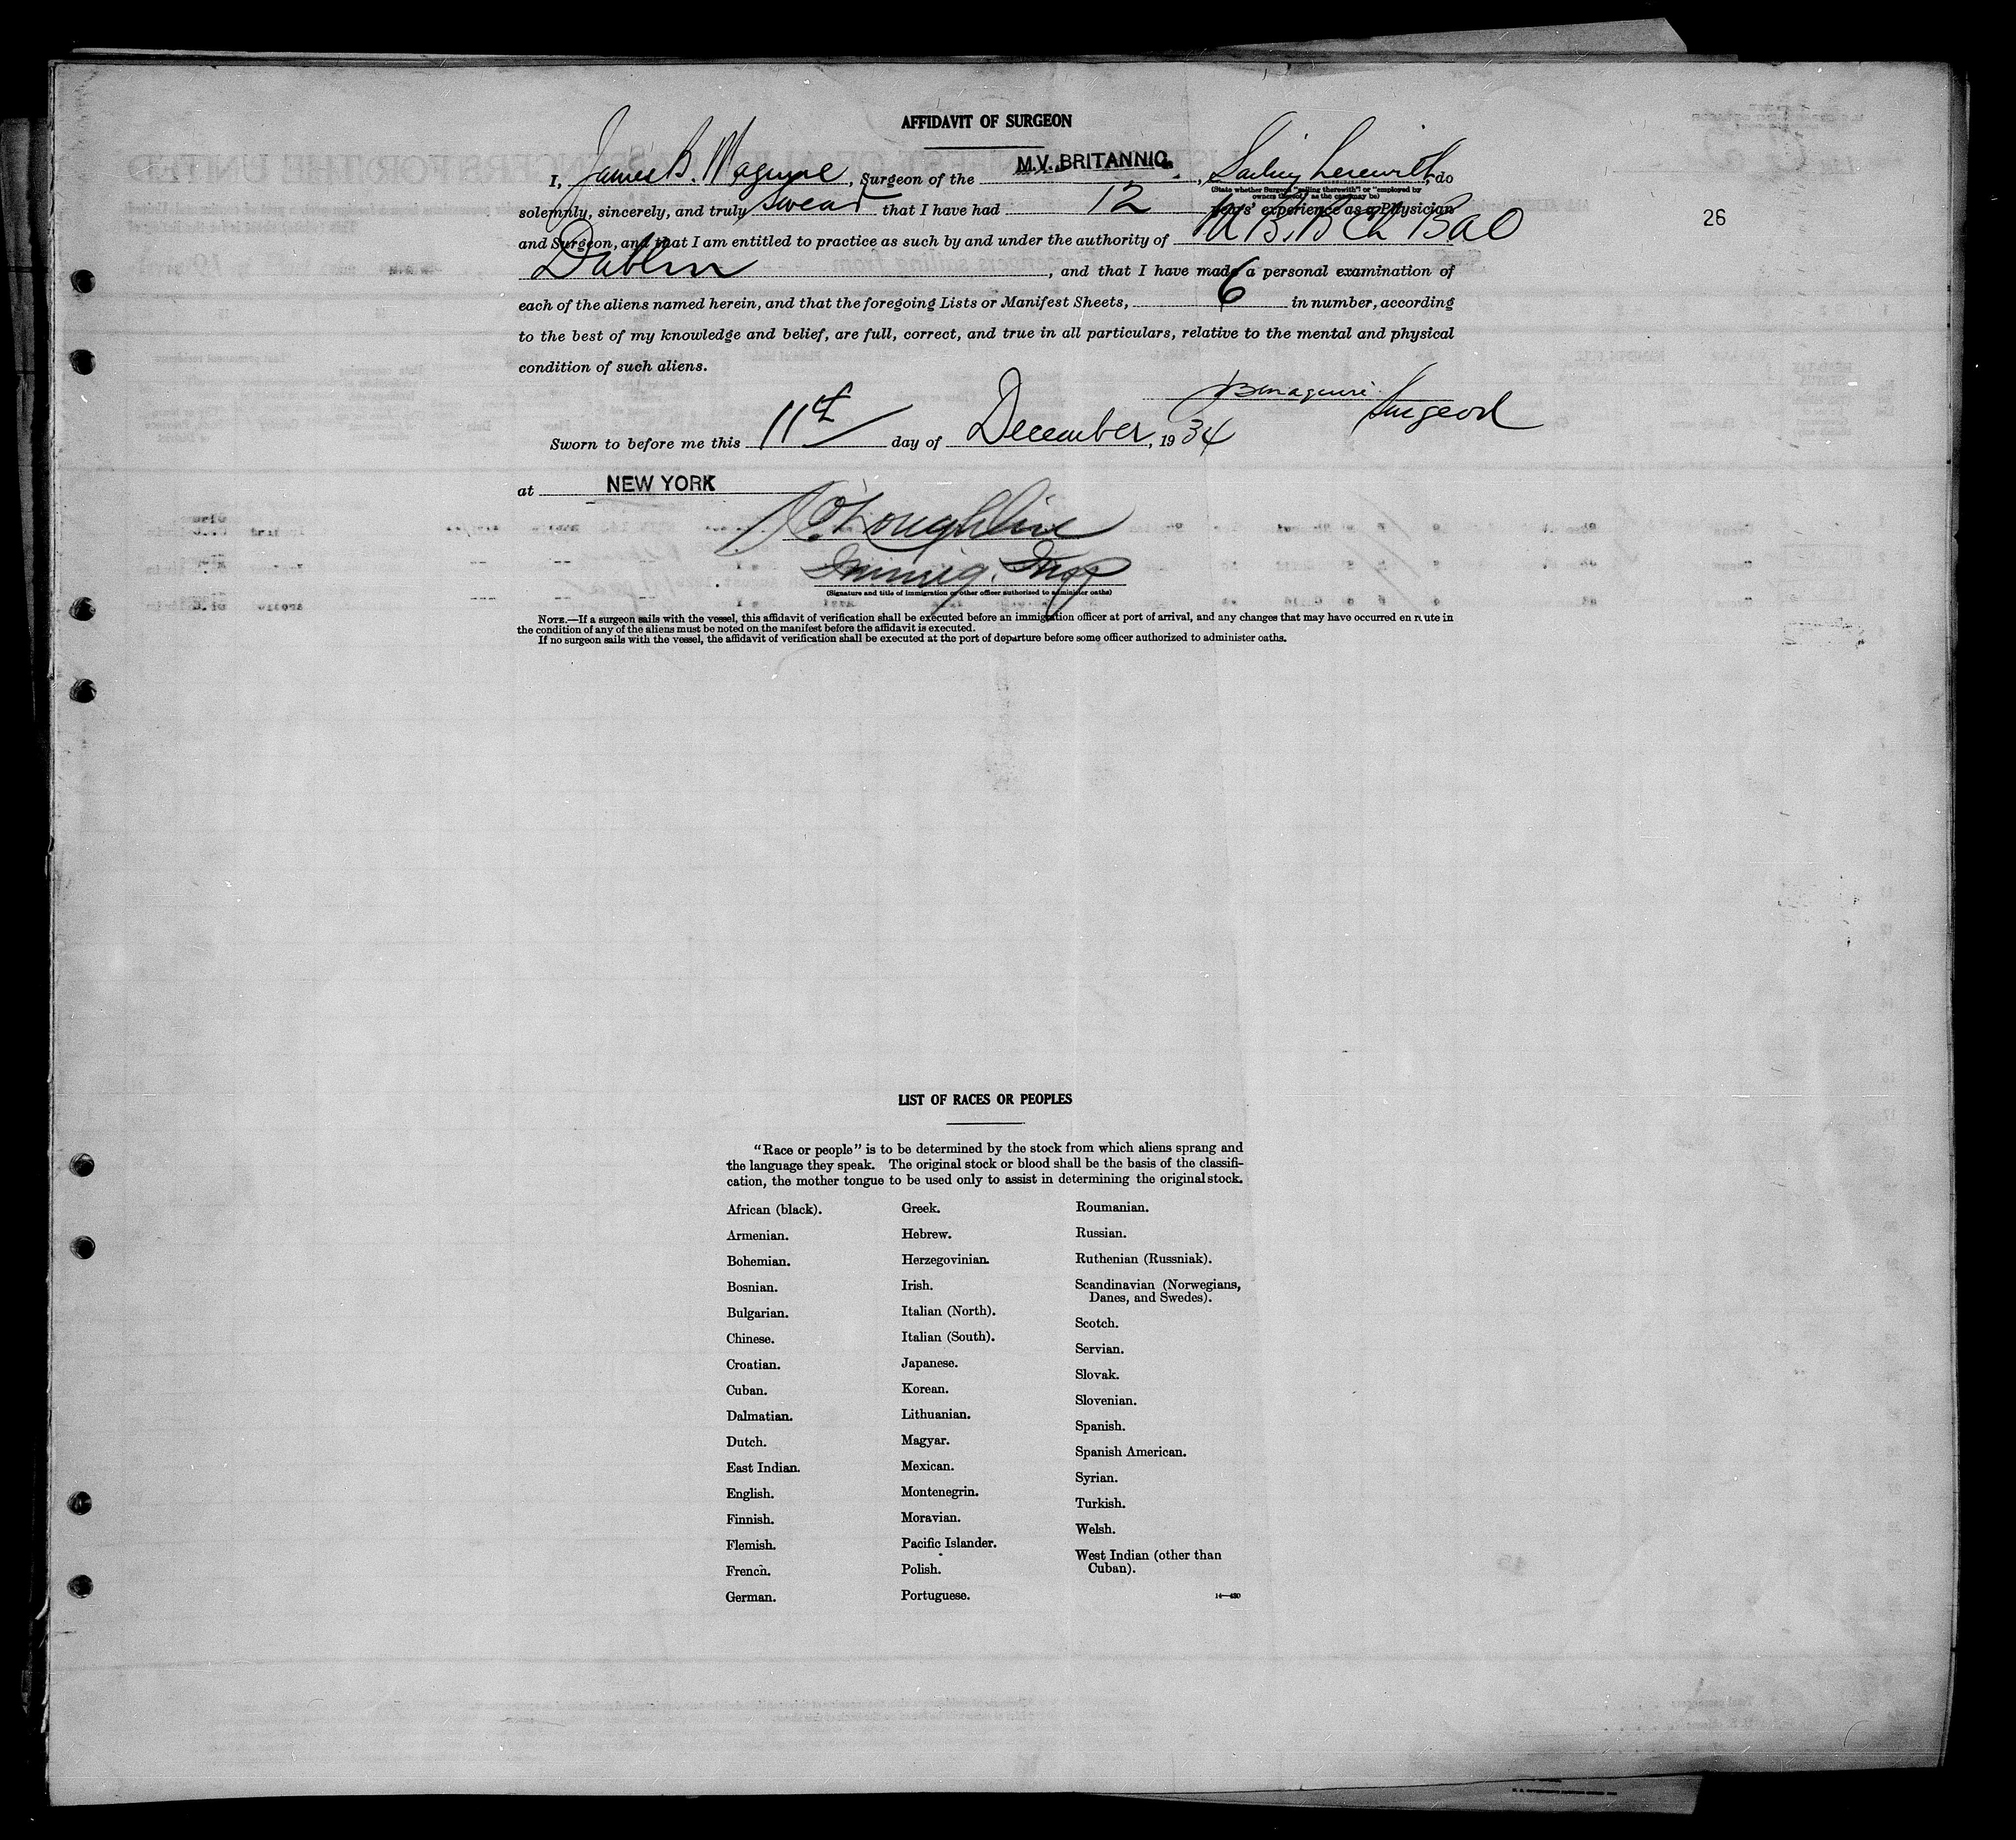 AFFIDAVIT OF SURGEON
I, James B. Maguire, Surgeon of the M.V. BRITANNIC, Sailing herewith, do
(State whether Surgeon "sailing therewith" or "employed by owners thereof," as the case may be)
solemnly, sincerely, and truly swear that I have had 12 years' experience as a Physician
26
and Surgeon, and that I am entitled to practice as such by and under the authority of M B, B Ch BaO
Dublin, and that I have made a personal examination of
each of the aliens named herein, and that the foregoing Lists or Manifest Sheets, 6 in number, according
to the best of my knowledge and belief, are full, correct, and true in all particulars, relative to the mental and physical
condition of such aliens.
JBMaguire Surgeon
Sworn to before me this 11th day of December, 1934
at NEW YORK
O'Loughlin
Immig. Insp
(Signature and title of immigration or other officer authorized to administer oaths)
NOTE.—If a surgeon sails with the vessel, this affidavit of verification shall be executed before an immigration officer at port of arrival, and any changes that may have occurred en route in
the condition of any of the aliens must be noted on the manifest before the affidavit is executed.
If no surgeon sails with the vessel, the affidavit of verification shall be executed at the port of departure before some officer authorized to administer oaths.
LIST OF RACES OR PEOPLES
"Race or people" is to be determined by the stock from which aliens sprang and
the language they speak. The original stock or blood shall be the basis of the classifi-
cation, the mother tongue to be used only to assist in determining the original stock.
African (black).
Armenian.
Bohemian.
Bosnian.
Bulgarian.
Chinese.
Croatian.
Cuban.
Dalmatian.
Dutch.
East Indian.
English.
Finnish.
Flemish.
French.
German.
Greek.
Hebrew.
Herzegovinian.
Irish.
Italian (North).
Italian (South).
Japanese.
Korean.
Lithuanian.
Magyar.
Mexican.
Montenegrin.
Moravian.
Pacific Islander.
Polish.
Portuguese.
Roumanian.
Russian.
Ruthenian (Russniak).
Scandinavian (Norwegians,
Danes, and Swedes).
Scotch.
Servian.
Slovak.
Slovenian.
Spanish.
Spanish American.
Syrian.
Turkish.
Welsh.
West Indian (other than
Cuban).